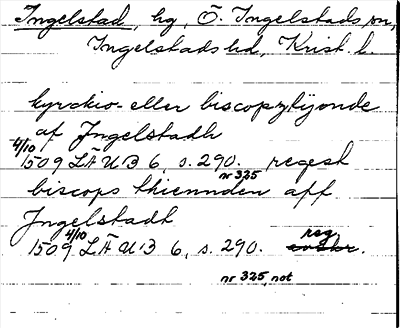 Ingelstad, hg, Ö. Ingelstads sn,
Ingelstads hd, Krist. l.
kyrckio- eller biscopztÿonde
af Jngelstadh
4/10
1509 LÄUB 6, s. 290. regest
nr 325
biscops thiennden aff
Jngelstadt
4/10
1509 LÄUB 6, s. 290. reg.
nr 325, not